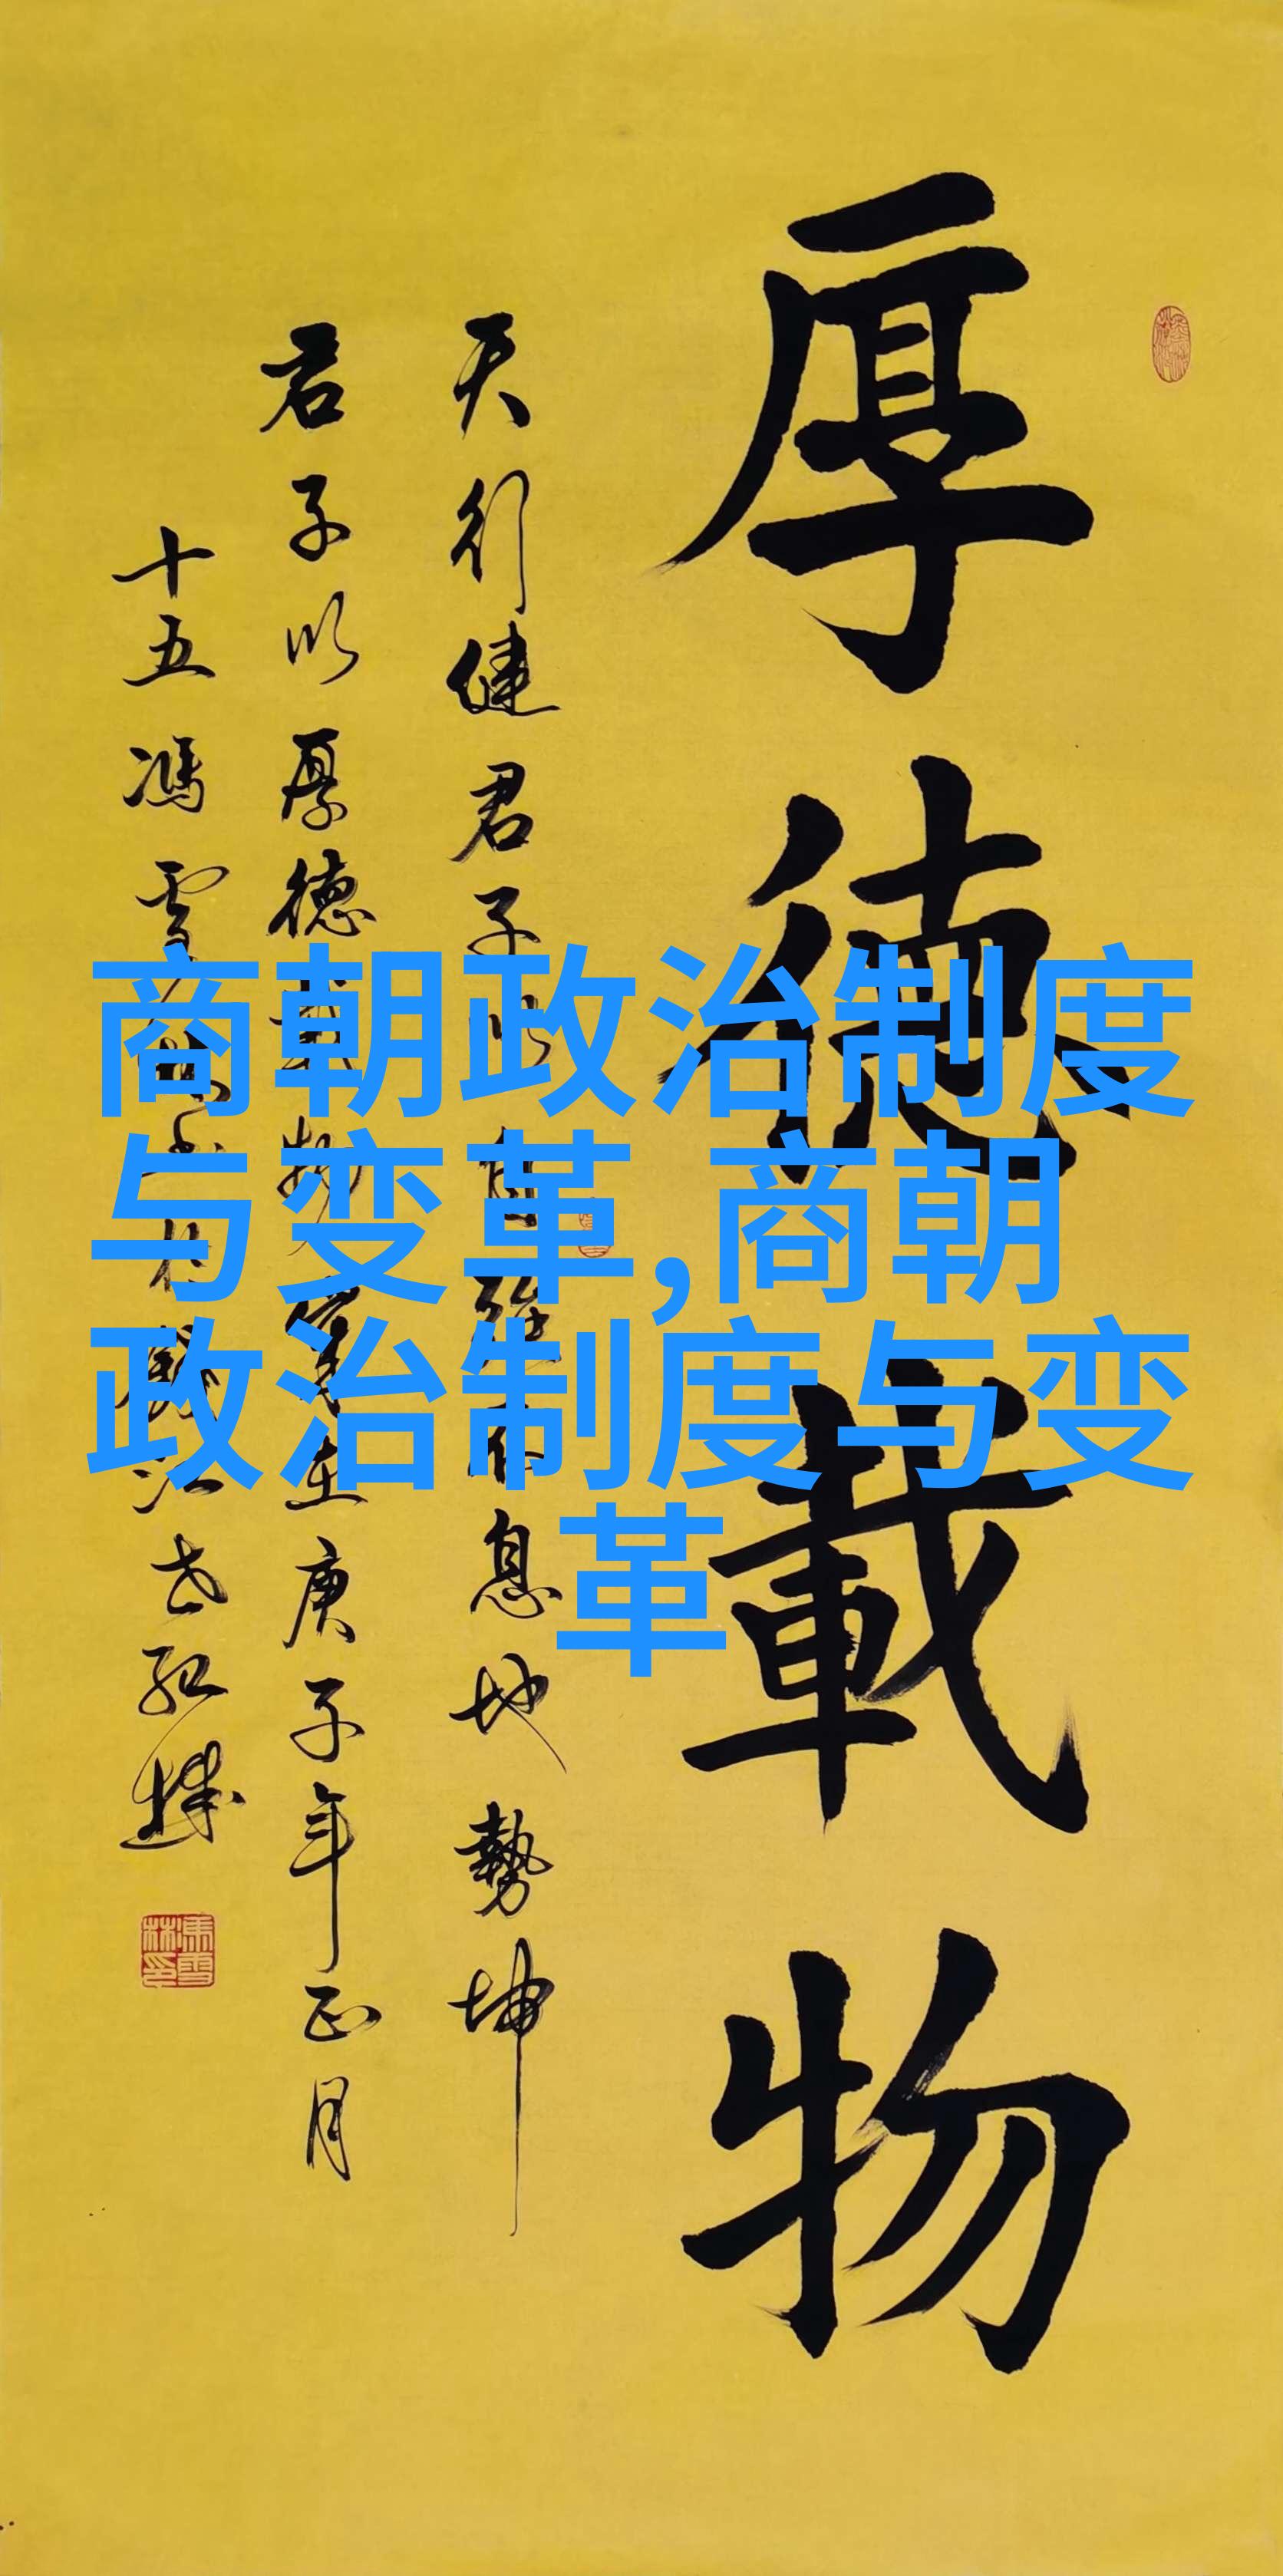 厚德載物
天行健君子以自強不息地勢坤
君子以厚德載物 庚子年正月
十五馮雪林書於
商朝政治制度
与变革,商朝
政治制度与变
革